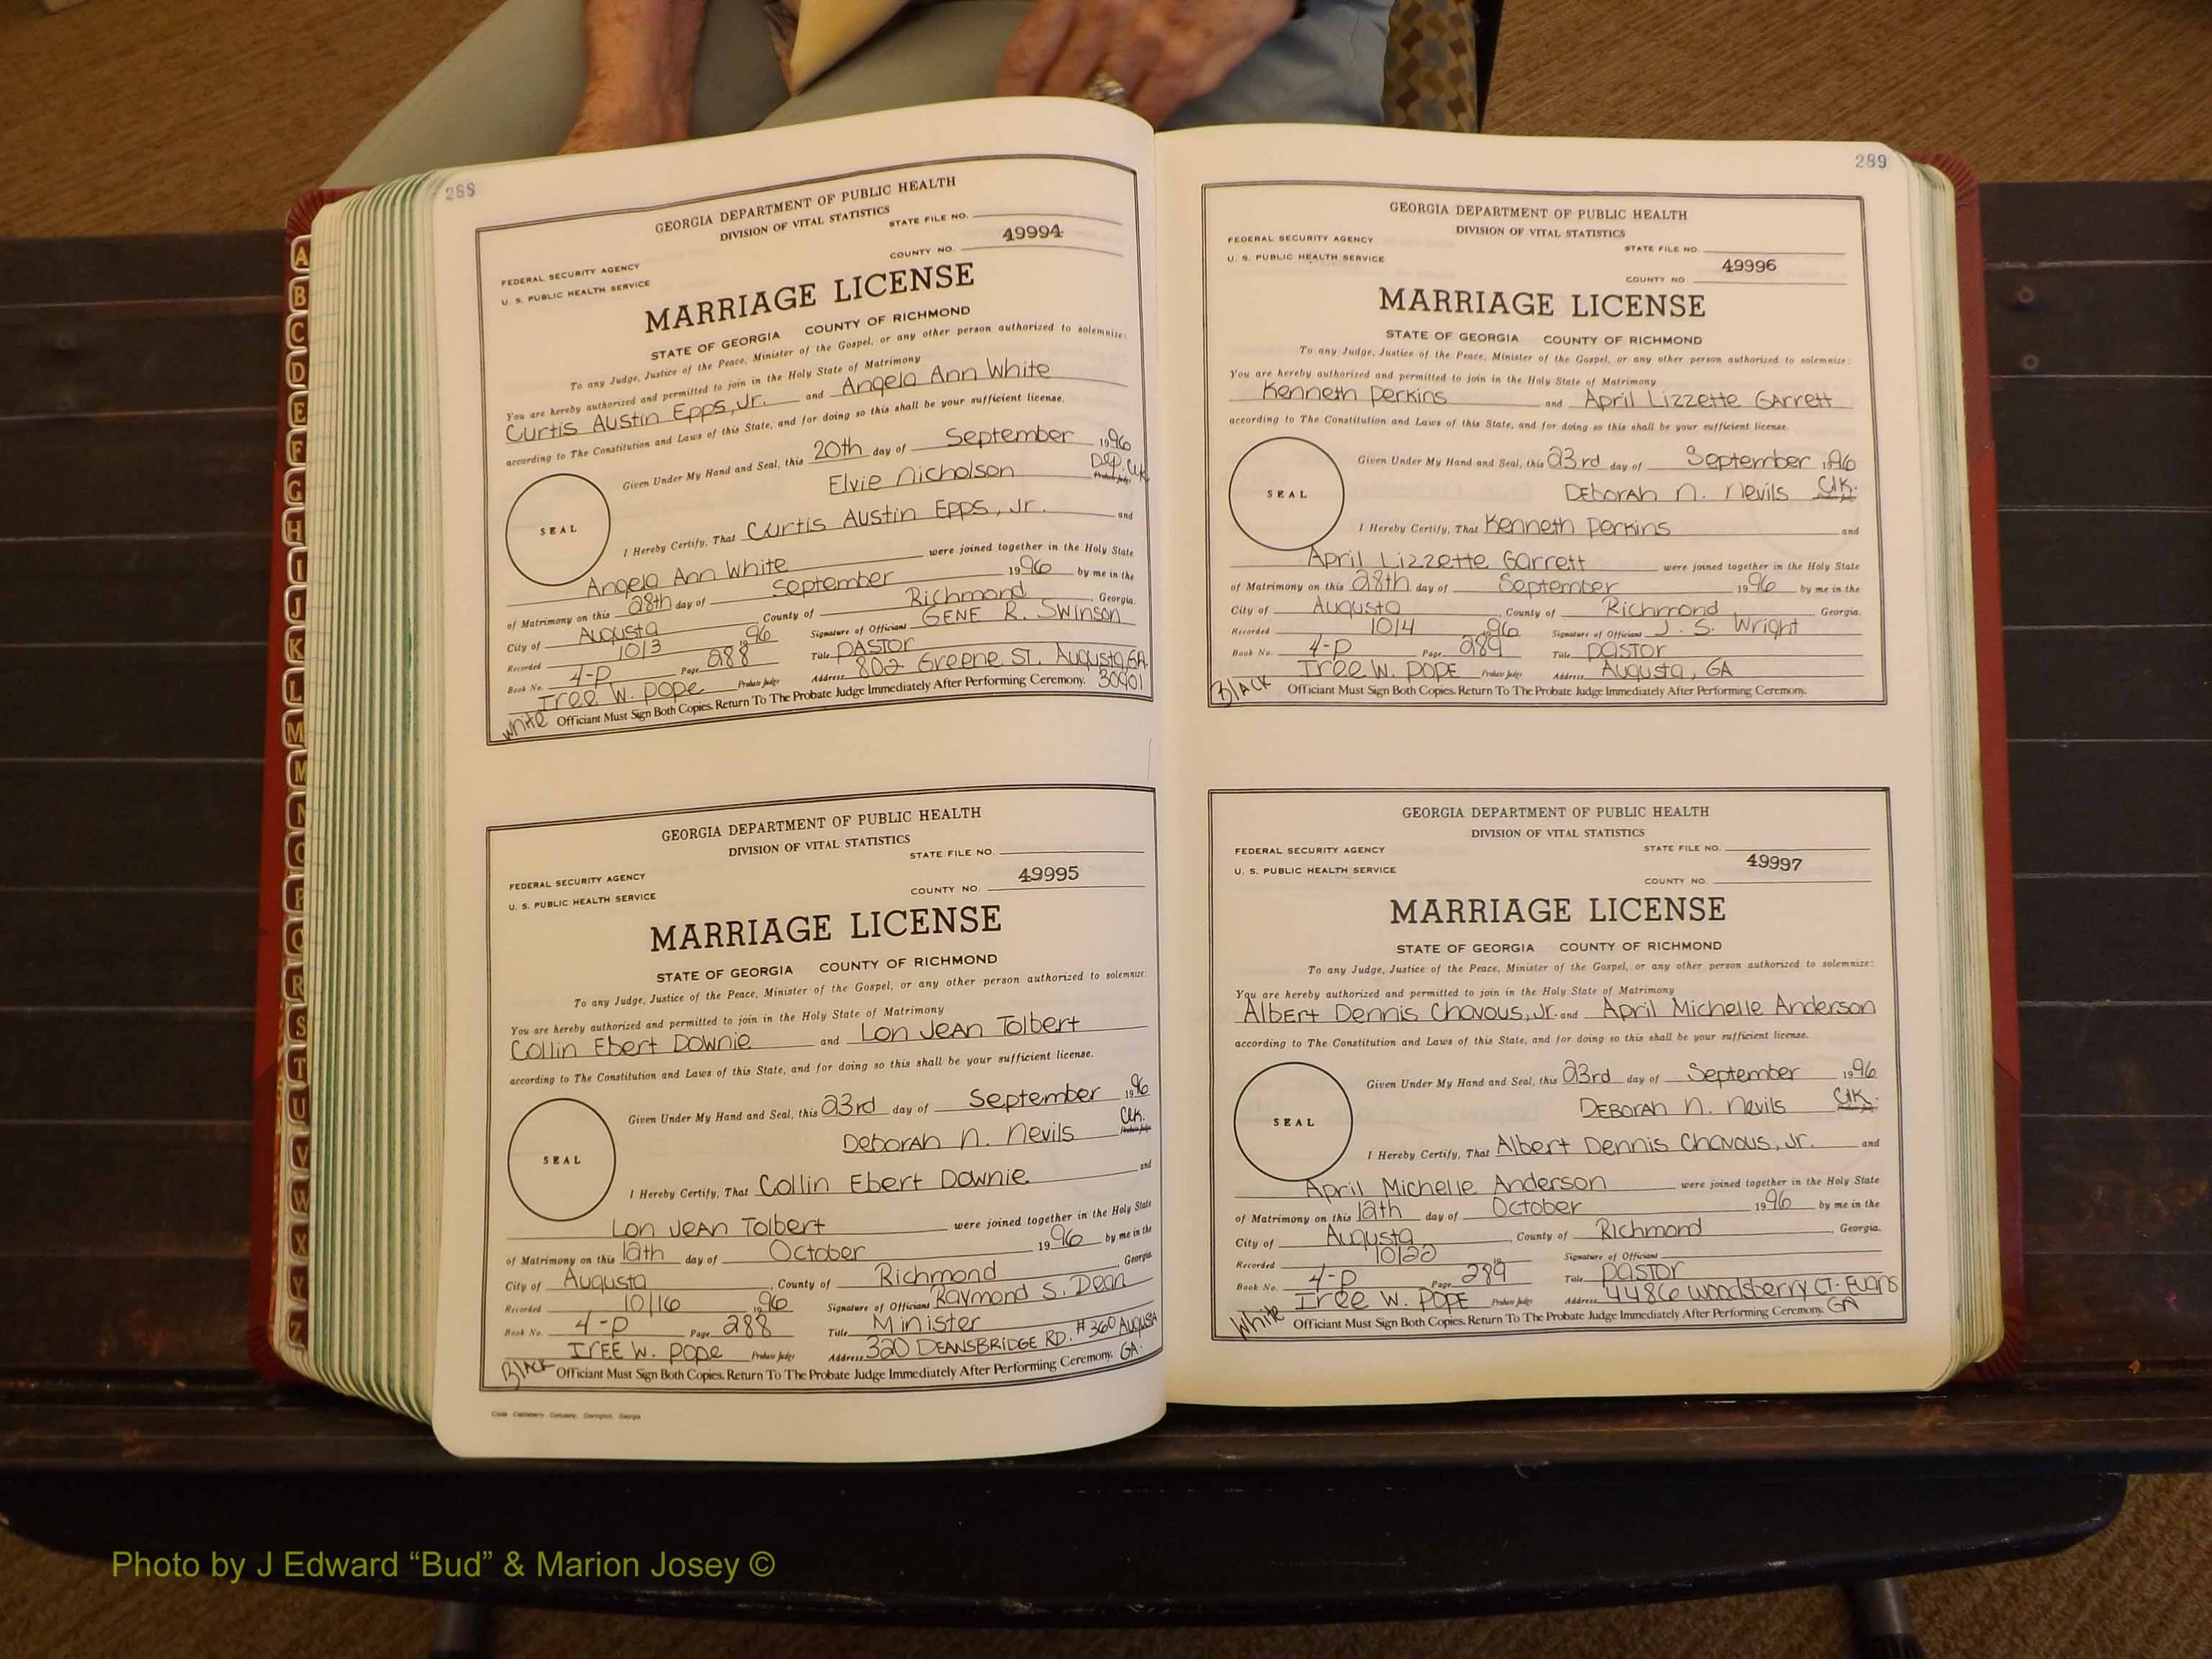 288
GEORGIA DEPARTMENT OF PUBLIC HEALTH
DIVISION OF VITAL STATISTICS
STATE FILE NO.
49994
COUNTY NO.
FEDERAL SECURITY AGENCY
U. S. PUBLIC HEALTH SERVICE
MARRIAGE LICENSE
STATE OF GEORGIA COUNTY OF RICHMOND
To any Judge, Justice of the Peace, Minister of the Gospel, or any other person authorized to solemnize:
You are hereby authorized and permitted to join in the Holy State of Matrimony
Curtis Austin Epps, Jr. and Angela Ann White
according to The Constitution and Laws of this State, and for doing so this shall be your sufficient license.
Given Under My Hand and Seal, this 20th day of September 1996
Elvie Nicholson Dep. Clk
SEAL
I Hereby Certify, That Curtis Austin Epps, Jr. and
Angela Ann White were joined together in the Holy State
of Matrimony on this 28th day of September 1996 by me in the
City of Augusta, County of Richmond, Georgia.
Recorded 10/3 1996 Signature of Official GENE R. Swinson
Book No. 4-P Page 288 Title PASTOR
Iree W. Pope Probate Judge Address 802 Greene St. Augusta, GA. 30901
White Officiant Must Sign Both Copies. Return To The Probate Judge Immediately After Performing Ceremony.
GEORGIA DEPARTMENT OF PUBLIC HEALTH
DIVISION OF VITAL STATISTICS
STATE FILE NO.
49995
COUNTY NO.
FEDERAL SECURITY AGENCY
U. S. PUBLIC HEALTH SERVICE
MARRIAGE LICENSE
STATE OF GEORGIA COUNTY OF RICHMOND
To any Judge, Justice of the Peace, Minister of the Gospel, or any other person authorized to solemnize:
You are hereby authorized and permitted to join in the Holy State of Matrimony
Collin Ebert Downie and Lon Jean Tolbert
according to The Constitution and Laws of this State, and for doing so this shall be your sufficient license.
Given Under My Hand and Seal, this 23rd day of September 1996
Deborah N. Nevils Clk.
SEAL
I Hereby Certify, That Collin Ebert Downie and
Lon Jean Tolbert were joined together in the Holy State
of Matrimony on this 12th day of October 1996 by me in the
City of Augusta, County of Richmond, Georgia
Recorded 10/16 1996 Signature of Official Raymond S. Dean
Book No. 4-P Page 288 Title Minister
Iree W. Pope Probate Judge Address 320 Deansbridge Rd. #360 Augusta GA.
Black Officiant Must Sign Both Copies. Return To The Probate Judge Immediately After Performing Ceremony.
289
GEORGIA DEPARTMENT OF PUBLIC HEALTH
DIVISION OF VITAL STATISTICS
FEDERAL SECURITY AGENCY
STATE FILE NO.
U. S. PUBLIC HEALTH SERVICE
49996
COUNTY NO
MARRIAGE LICENSE
STATE OF GEORGIA COUNTY OF RICHMOND
To any Judge, Justice of the Peace, Minister of the Gospel, or any other person authorized to solemnize:
You are hereby authorized and permitted to join in the Holy State of Matrimony
Kenneth Perkins and April Lizzette Garrett
according to The Constitution and Laws of this State, and for doing so this shall be your sufficient license.
Given Under My Hand and Seal, this 23rd day of September 1996
Deborah N. Nevils Clk.
SEAL
I Hereby Certify, That Kenneth Perkins and
April Lizzette Garrett were joined together in the Holy State
of Matrimony on this 28th day of September 1996 by me in the
City of Augusta, County of Richmond, Georgia.
Recorded 10/4 1996 Signature of Official J. S. Wright
Book No. 4-P Page 289 Title Pastor
Iree W. Pope Probate Judge Address Augusta, GA
Black Officiant Must Sign Both Copies. Return To The Probate Judge Immediately After Performing Ceremony.
GEORGIA DEPARTMENT OF PUBLIC HEALTH
DIVISION OF VITAL STATISTICS
FEDERAL SECURITY AGENCY
STATE FILE NO.
U. S. PUBLIC HEALTH SERVICE
49997
COUNTY NO.
MARRIAGE LICENSE
STATE OF GEORGIA COUNTY OF RICHMOND
To any Judge, Justice of the Peace, Minister of the Gospel, or any other person authorized to solemnize:
You are hereby authorized and permitted to join in the Holy State of Matrimony
Albert Dennis Chavous, Jr. and April Michelle Anderson
according to The Constitution and Laws of this State, and for doing so this shall be your sufficient license.
Given Under My Hand and Seal, this 23rd day of September 1996
Deborah N. Nevils Clk.
SEAL
I Hereby Certify, That Albert Dennis Chavous, Jr. and
April Michelle Anderson were joined together in the Holy State
of Matrimony on this 12th day of October 1996 by me in the
City of Augusta, County of Richmond Georgia.
Recorded 10/22 19 Signature of Official
Book No. 4-P Page 289 Title Pastor
Iree W. Pope Probate Judge Address 4486 Woodsberry Ct. Evans GA
White Officiant Must Sign Both Copies. Return To The Probate Judge Immediately After Performing Ceremony.
A
B
C
D
E
F
G
H
I
J
K
L
M
M
N
O
P
Q
R
S
T
U
V
W
X
Y
Z
Photo by J Edward “Bud” & Marion Josey ©